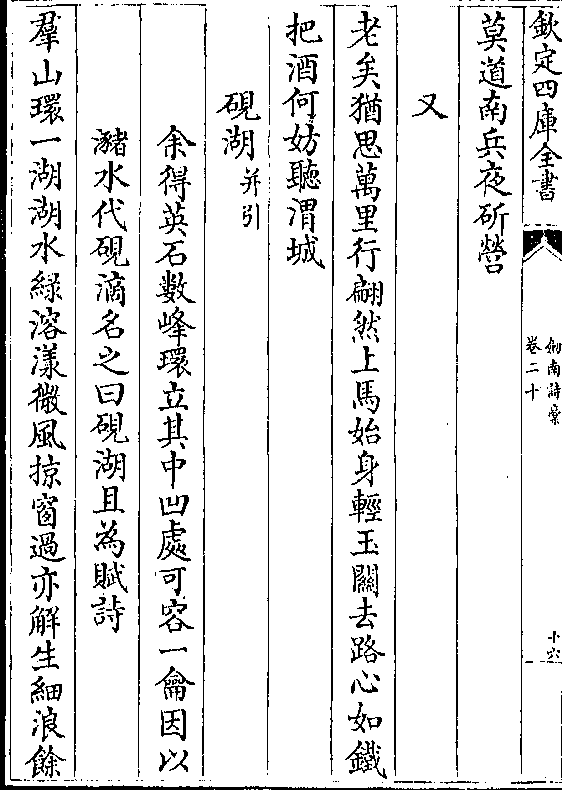 欽定四庫全書
劍南詩藁
卷二十
十六
莫道南兵夜斫營
又
老矣猶思萬里行翩然上馬始身輕玉關去路心如鐵
把酒何妨聽渭城
硯湖并引
余得英石數峰環立其中凹處可容一龠因以
瀦水代硯滴名之曰硯湖且為賦詩
羣山環一湖湖水綠溶漾微風掠窗過亦解生細浪餘